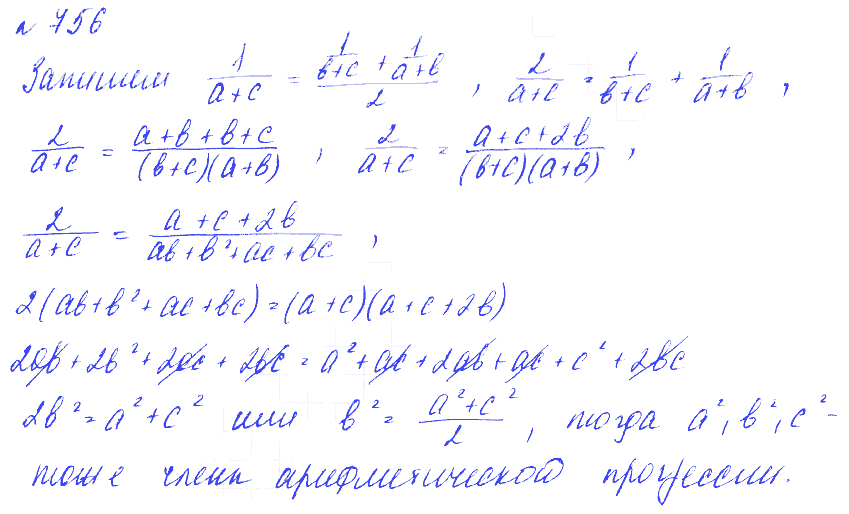 № 756
Запишем 1/(a+c) = (1/(в+c) + 1/(a+в))/2 , 2/(a+c) = 1/(в+c) + 1/(a+в) ,
2/(a+c) = (a+в+в+c)/((в+c)(a+в)) , 2/(a+c) = (a+c+2в)/((в+c)(a+в)) ,
2/(a+c) = (a+c+2в)/(aв+в²+ac+вc) ,
2(aв+в²+ac+вc)=(a+c)(a+c+2в)
2aв+2в²+2ac+2вc = a²+ac+2aв+ac+c²+2вc
2в²=a²+c² или в²= (a²+c²)/2 , тогда a², в², c² -
тоже члены арифметической прогрессии.